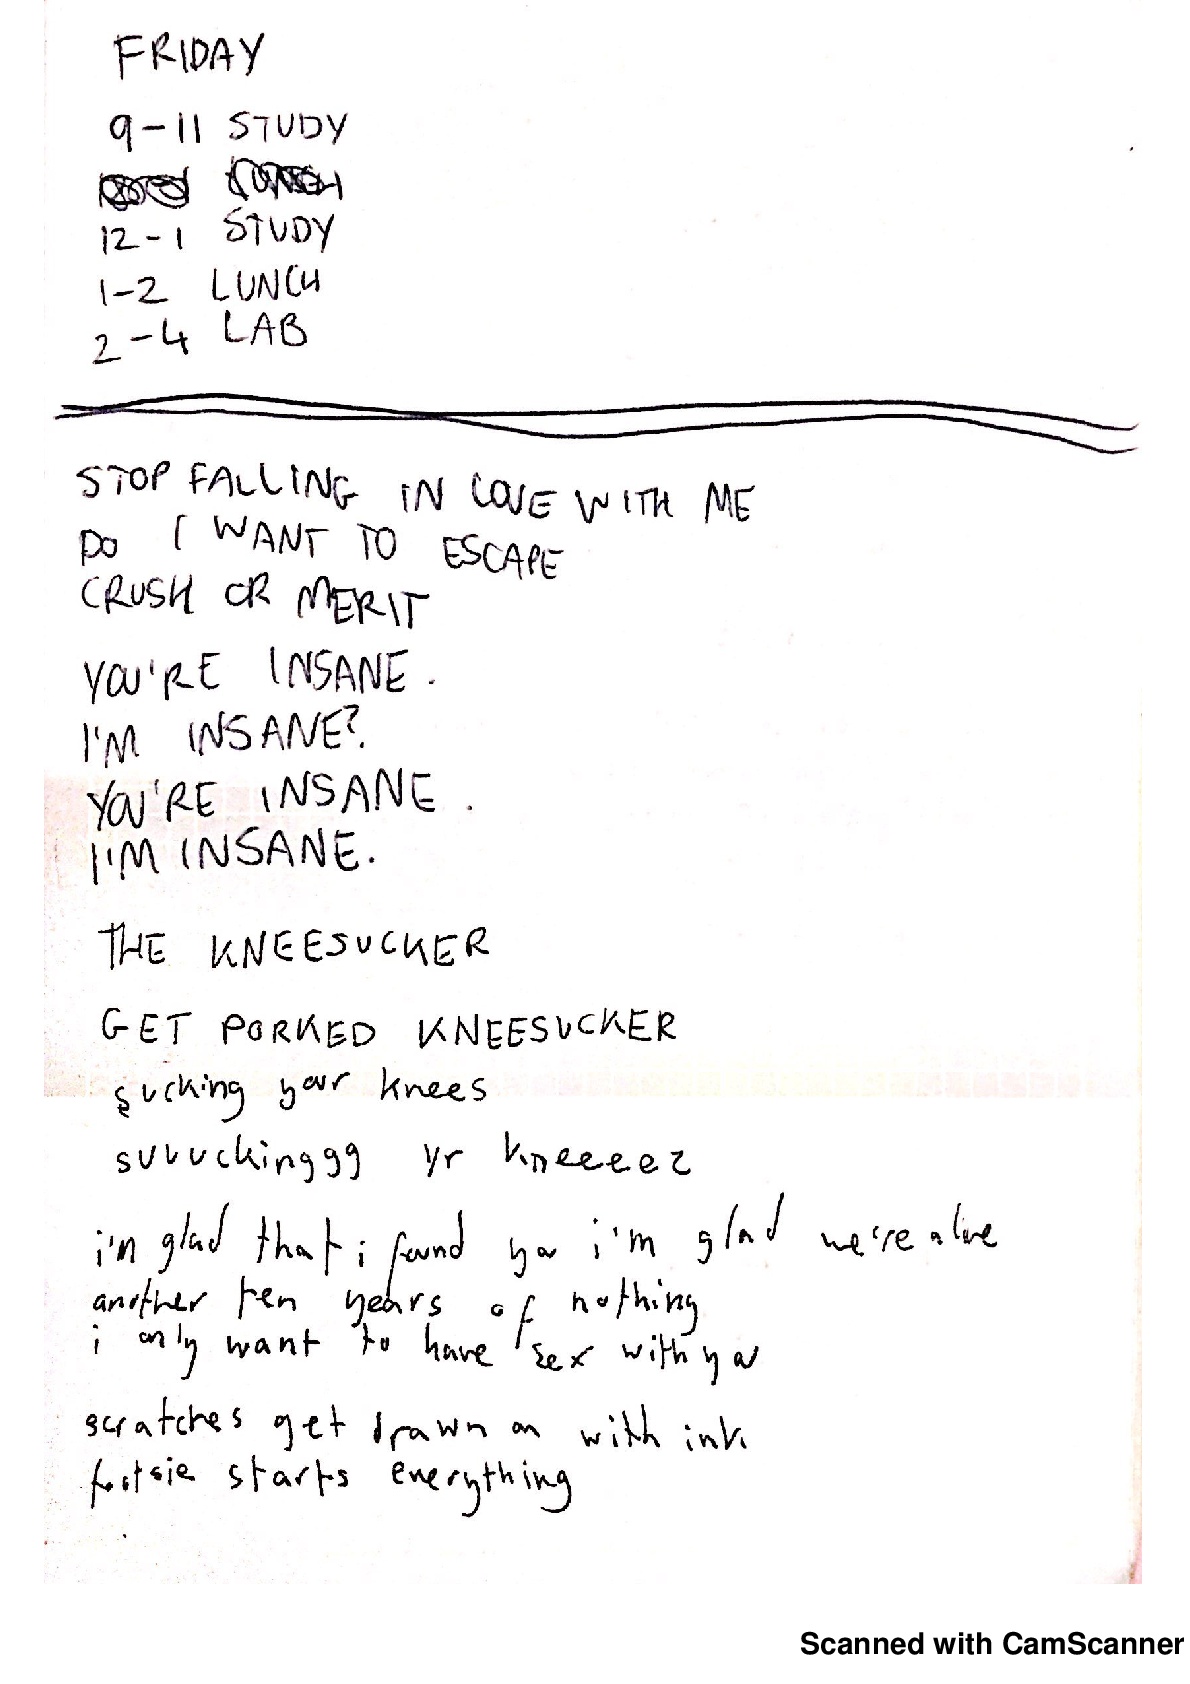 FRIDAY
9-11 STUDY
12-1 STUDY
1-2 LUNCH
2-4 LAB
STOP FALLING IN LOVE WITH ME
DO I WANT TO ESCAPE
CRUSH OR MERIT
YOU'RE INSANE.
I'M INSANE?
YOU'RE INSANE.
I'M INSANE.
THE KNEESUCKER
GET PORKED KNEESUCKER
sucking your knees
suuuckinggg yr kneeeez
i'm glad that i found you i'm glad we're alive
another ten years of nothing
i only want to have sex with you
scratches get drawn on with ink
footsie starts everything
Scanned with CamScanner